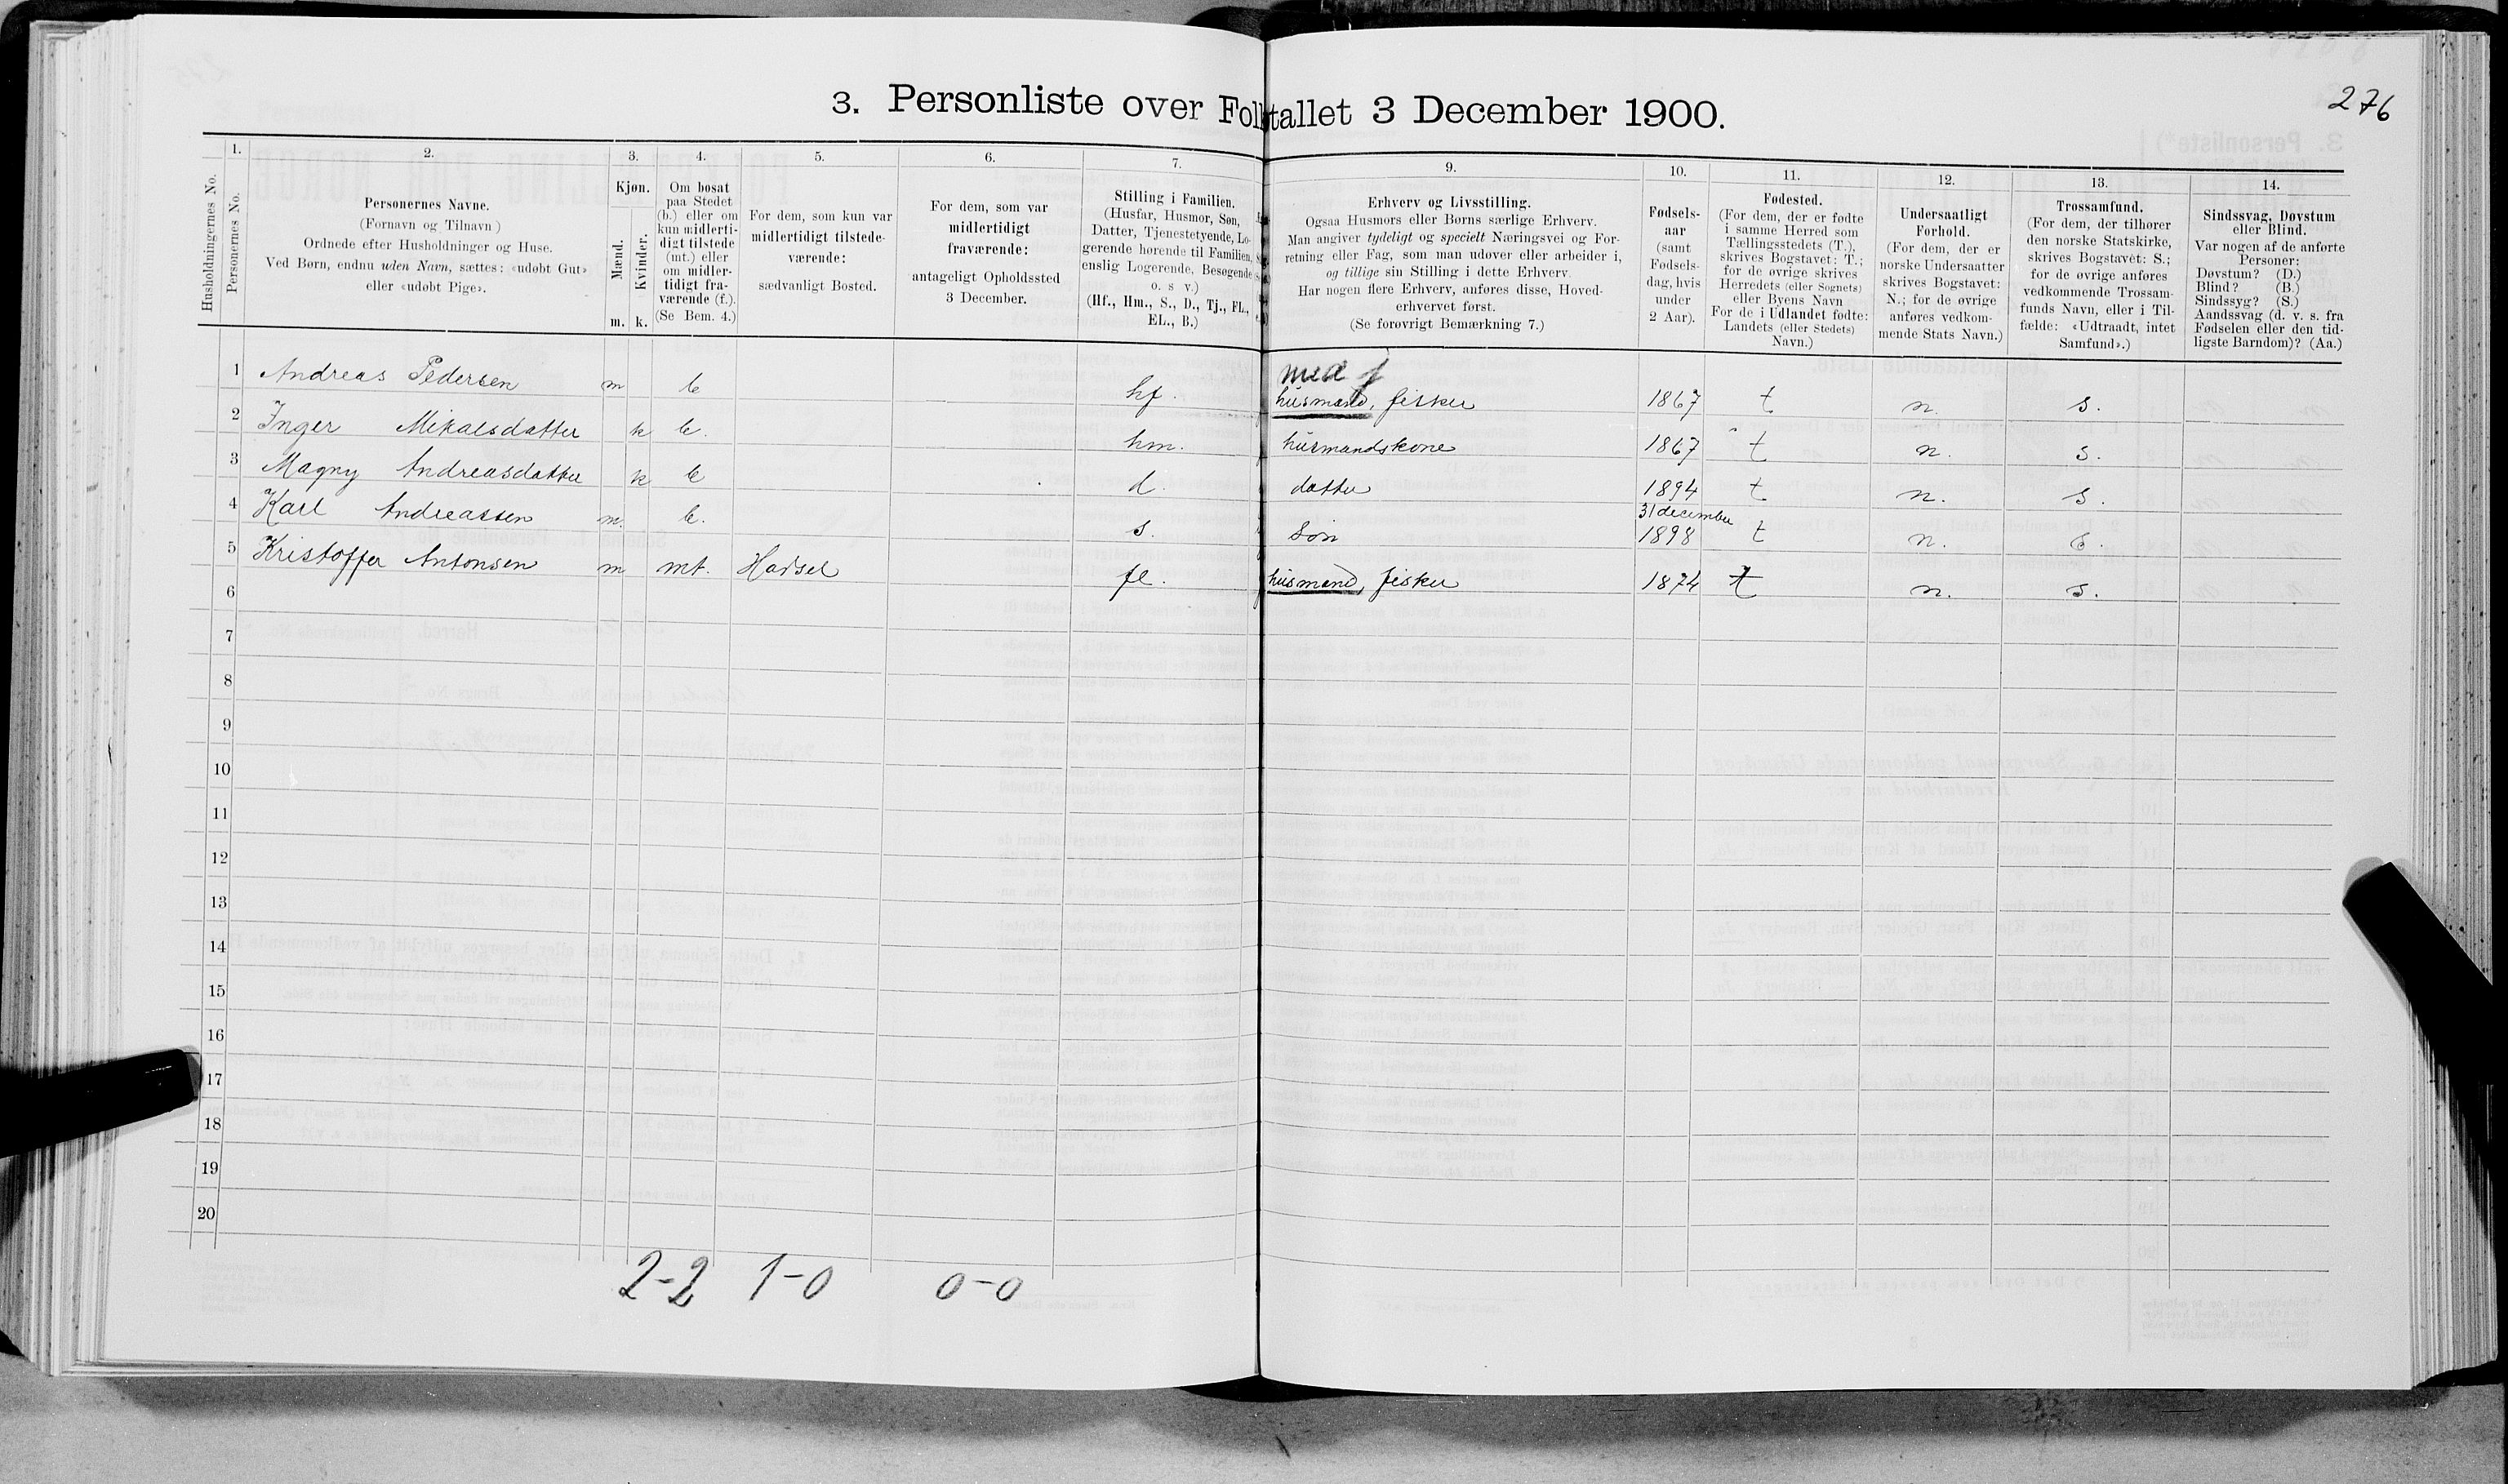 276
3. Personliste over Folketallet 3 December 1900.
Husholdningernes No.
1.
Personernes No.
2.
Personernes Navne.
(Fornavn og Tilnavn)
Ordnede efter Husholdninger og Huse.
Ved Børn, endnu uden Navn, sættes: «udøbt Gut»
eller «udøbt Pige».
3.
Kjøn.
Mænd.
Kvinder.
m. k.
4.
Om bosat
paa Stedet
(b.) eller om
kun midlerti-
digt tilstede
(mt.) eller
om midler-
tidigt fra-
værende (f.).
(Se Bem. 4.)
5.
For dem, som kun var
midlertidigt tilstede-
værende:
sædvanligt Bosted.
6.
For dem, som var
midlertidigt
fraværende:
antageligt Opholdssted
3 December.
7.
Stilling i Familien.
(Husfar, Husmor, Søn,
Datter, Tjenestetyende, Lo-
gerende hørende til Familien,
enslig Logerende, Besøgende
o. s v.)
(Hf., Hm., S., D., Tj., FL.,
EL., B.)
9.
Erhverv og Livsstilling.
Ogsaa Husmors eller Børns særlige Erhverv.
Man angiver tydeligt og specielt Næringsvei og For-
retning eller Fag, som man udøver eller arbeider i,
og tillige sin Stilling i dette Erhverv.
Har nogen flere Erhverv, anføres disse, Hoved-
erhvervet først.
(Se forøvrigt Bemærkning 7.)
10.
Fødsels-
aar
(samt
Fødsels-
dag, hvis
under
2 Aar).
11.
Fødested.
(For dem, der er fødte
i samme Herred som
Tællingsstedets (T.),
skrives Bogstavet: T.;
for de øvrige skrives
Herredets (eller Sognets)
eller Byens Navn
For de i Udlandet fødte:
Landets (eller Stedets)
Navn.)
12.
Undersaatligt
Forhold.
(For dem, der er
norske Undersaatter
skrives Bogstavet:
N.; for de øvrige
anføres vedkom-
mende Stats Navn.)
13.
Trossamfund.
(For dem, der tilhører
den norske Statskirke,
skrives Bogstavet: S.;
for de øvrige anføres
vedkommende Trossam-
funds Navn, eller i Til-
fælde: «Udtraadt, intet
Samfund».)
14.
Sindssvag, Døvstum
eller Blind.
Var nogen af de anførte
Personer:
Døvstum? (D.)
Blind? (B.)
Sindssyg? (S.)
Aandssvag (d. v. s. fra
Fødselen eller den tid-
ligste Barndom)? (Aa.)
med j
1 Andreas Pedersen m b hf. husmand, fisker 1867 t n. s.
2 Inger Mikalsdatter k b. hm. husmandskone 1867 t n. s.
3 Magny Andreasdatter k b d. datter 1894 t n. s.
4 Karl Andreassen m. b. s. søn 31 december 1898 t n. s.
5 Kristoffer Antonsen m mt. Hadsel fl. husmand, fisker 1874 t n. s.
6
7
8
9
10
11
12
13
14
15
16
17
18
19
20
2-2 1-0 0-0